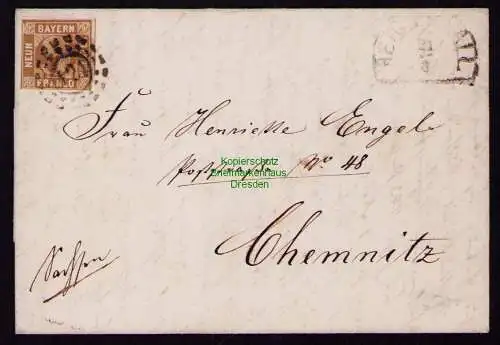 BAYERN
NEUN
FRANCO
Frau Henriette Engel
Poststraße No 48
Chemnitz
Sachsen
Kopierschutz
Briefmarkenhaus
Dresden